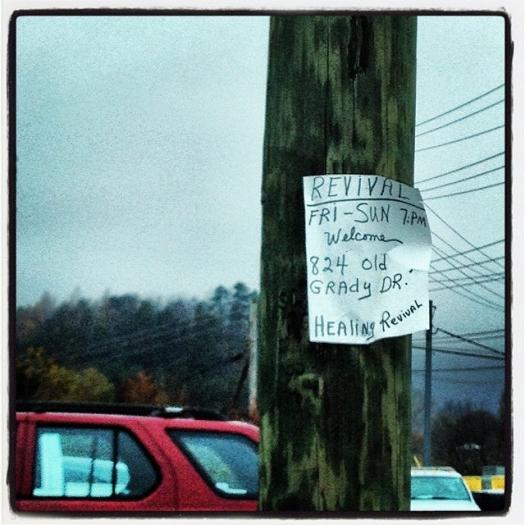 REVIVAL
FRI-SUN 7:PM
Welcome
824 Old
GRAdy DR.
HEAliNg Revival